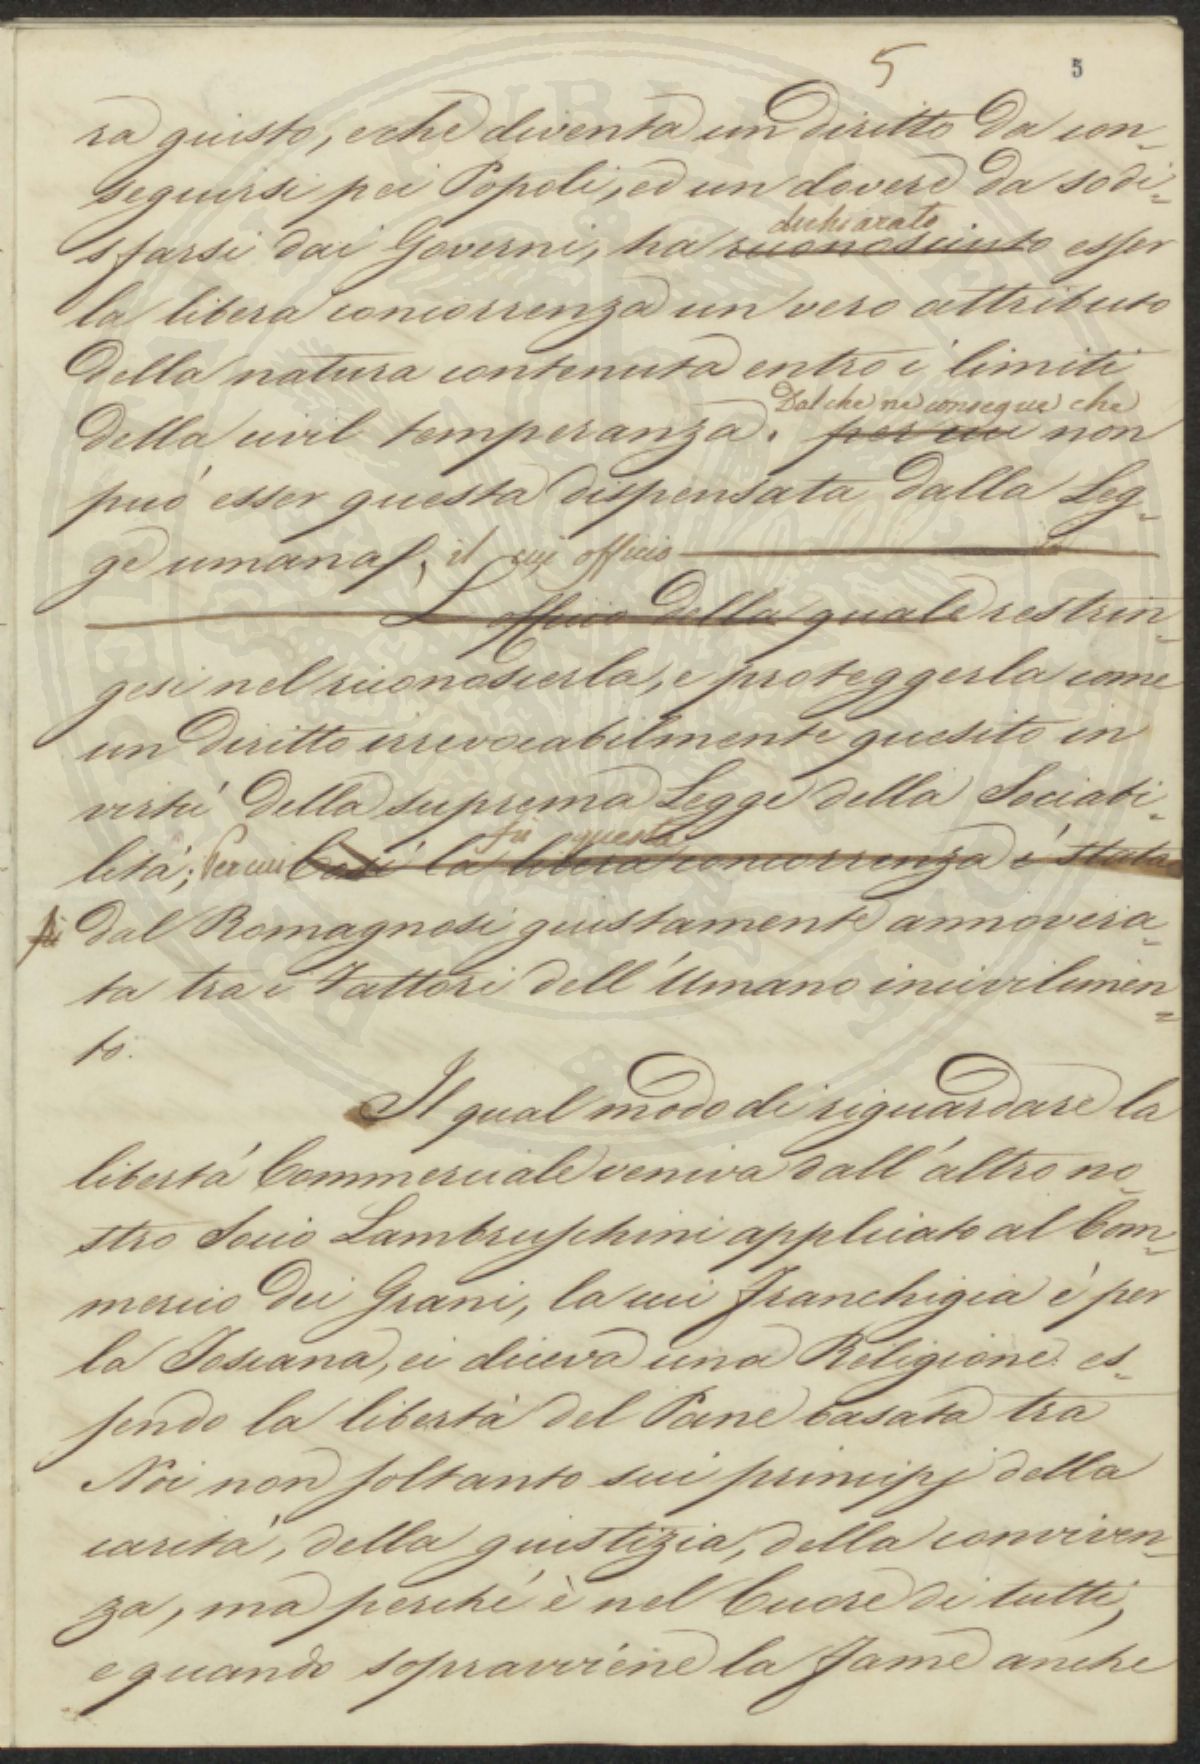 5 5
ra giusto, e che diventa un diritto da con-
seguirsi pei Popoli, ed un dovere da sodi-
dichiarato
sfarsi dai Governi, ha riconosciuto esser
la libera concorrenza un vero attributo
della natura contenuta entro i limiti
Dal che ne consegue che
della civil temperanza. per cui non
può esser questa dispensata dalla Leg-
ge umana, il cui officio
L'officio della quale restrin-
gesi nel riconoscerla, e proteggerla come
un diritto irrevocabilmente quesito in
virtù della suprema Legge della Sociabi-
fu questa
lità; Per cui Così la libera concorrenza è stata
fu dal Romagnosi giustamente annovera-
ta tra i Fattori dell'Umano incivilimen-
to.
Il qual modo di riguardare la
libertà Commerciale veniva dall'altro no-
stro Socio Lambruschini applicato al Com-
mercio dei Grani, la cui Franchigia è per
la Toscana, ei diceva una Religione es-
sendo la libertà del Pane basata tra
Noi non soltanto sui principj della
carità, della giustizia, della conviven-
za, ma perchè è nel Cuore di tutti,
e quando sopravviene la fame anche